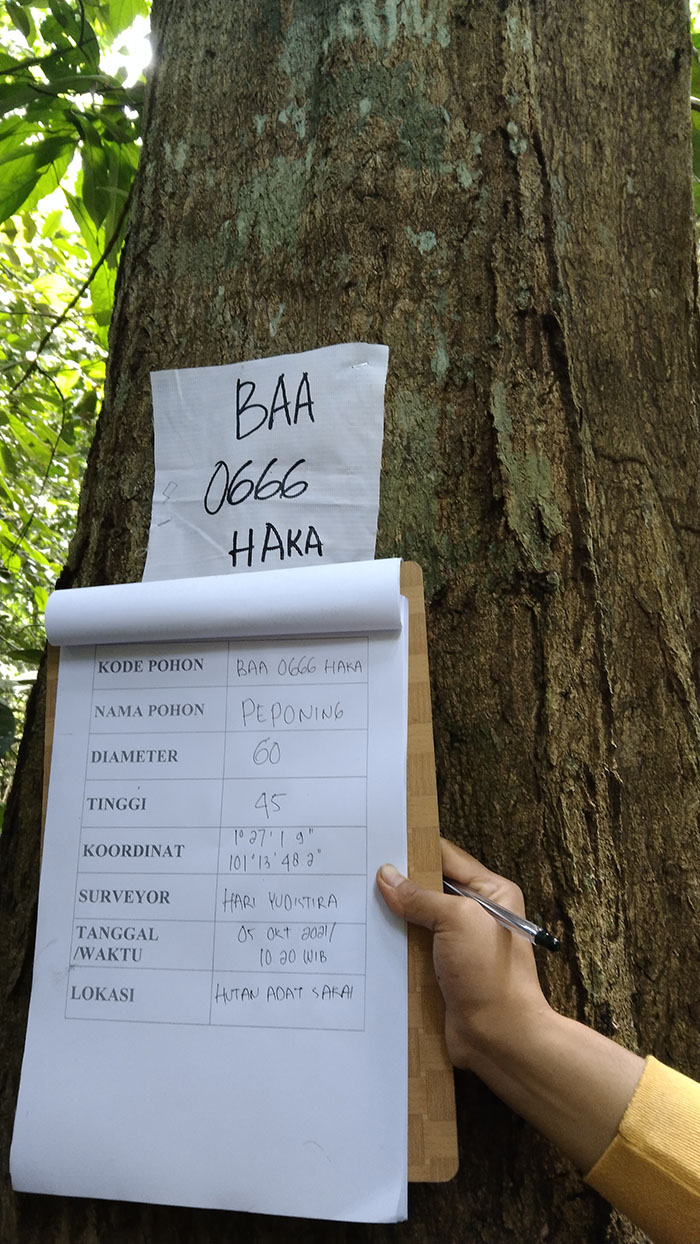 BAA
0666
HAKA
KODE POHON BAA 0666 HAKA
NAMA POHON PEPONING
DIAMETER 60
TINGGI 45
KOORDINAT 1° 27' 1 9"
101° 13' 48 2"
SURVEYOR HARI YUDISTIRA
TANGGAL 05 OKT 2021/
/WAKTU 10 20 WIB
LOKASI HUTAN ADAT SAKAI